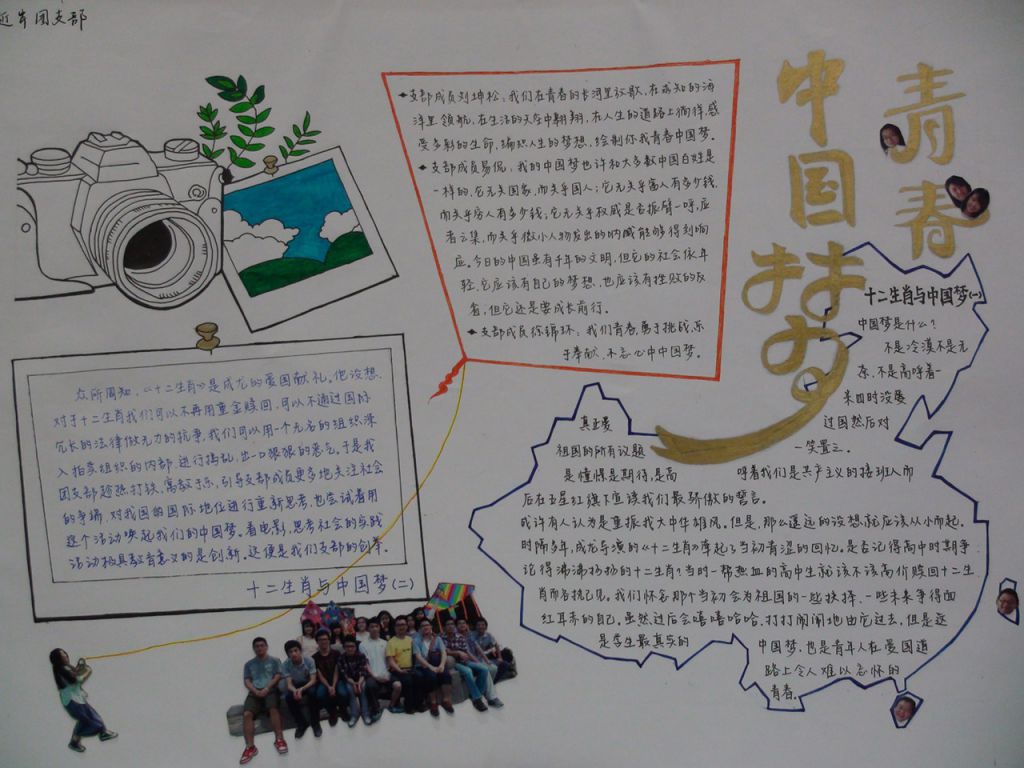 近岸团支部
中国梦
青春
支部成员刘坤松:我们在青春的长河里放歌,在求知的海
洋里领航,在生活的天空中翱翔,在人生的道路上徜徉,感
受多彩的生命,编织人生的梦想,绘制你我青春中国梦。
支部成员易侃:我的中国梦也许和大多数中国百姓是
一样的,它无关国家,而关乎国人;它无关富人有多少钱,
而关乎穷人有多少钱;它无关权威是否振臂一呼,应
者云集,而关乎微小人物发出的呐喊能够得到响
应。今日的中国虽有千年的文明,但它的社会依年
轻,它应该有自己的梦想,也应该有挫败的反
省,但它还是要成长前行。
支部成员徐锦环:我们青春,勇于挑战,乐
于奉献,不忘心中中国梦。
众所周知,《十二生肖》是成龙的爱国献礼。他设想,
对于十二生肖我们可以不再用重金赎回,可以不通过国际
冗长的法律做无力的抗争,我们可以用一个无名的组织深
入拍卖组织的内部,进行捣乱,出一口狠狠的恶气。于是我
团支部趁热打铁,寓教于乐,引导支部成员更多地关注社会
的争端,对我国的国际地位进行重新思考,也尝试着用
这个活动唤起我们的中国梦。看电影,思考社会的实践
活动极具教育意义的是创新。这便是我们支部的创举。
十二生肖与中国梦(二)
十二生肖与中国梦(一)
中国梦是什么?
不是冷漠不是无
奈,不是高呼着一
来四时没要
过国然后对
一笑置之。
真正爱
祖国的所有议题
是憧憬是期待,是高
呼着我们是共产主义的接班人而
后在五星红旗下宣读我们最骄傲的誓言。
或许有人认为是重振我大中华雄风。但是,那么遥远的设想,就应该从小而起。
时隔多年,成龙导演的《十二生肖》牵起了当初青涩的回忆。是否记得高中时期争
记得沸沸扬扬的十二生肖?当时一帮热血的高中生就该不该高价赎回十二生
肖而各执己见。我们怀念那个当初会为祖国的一些抉择、一些未来争得面
红耳赤的自己。虽然过后会嘻嘻哈哈,打打闹闹地由它过去。但是这
是学生最真实的
中国梦,也是青年人在爱国道
路上令人难以忘怀的
青春。